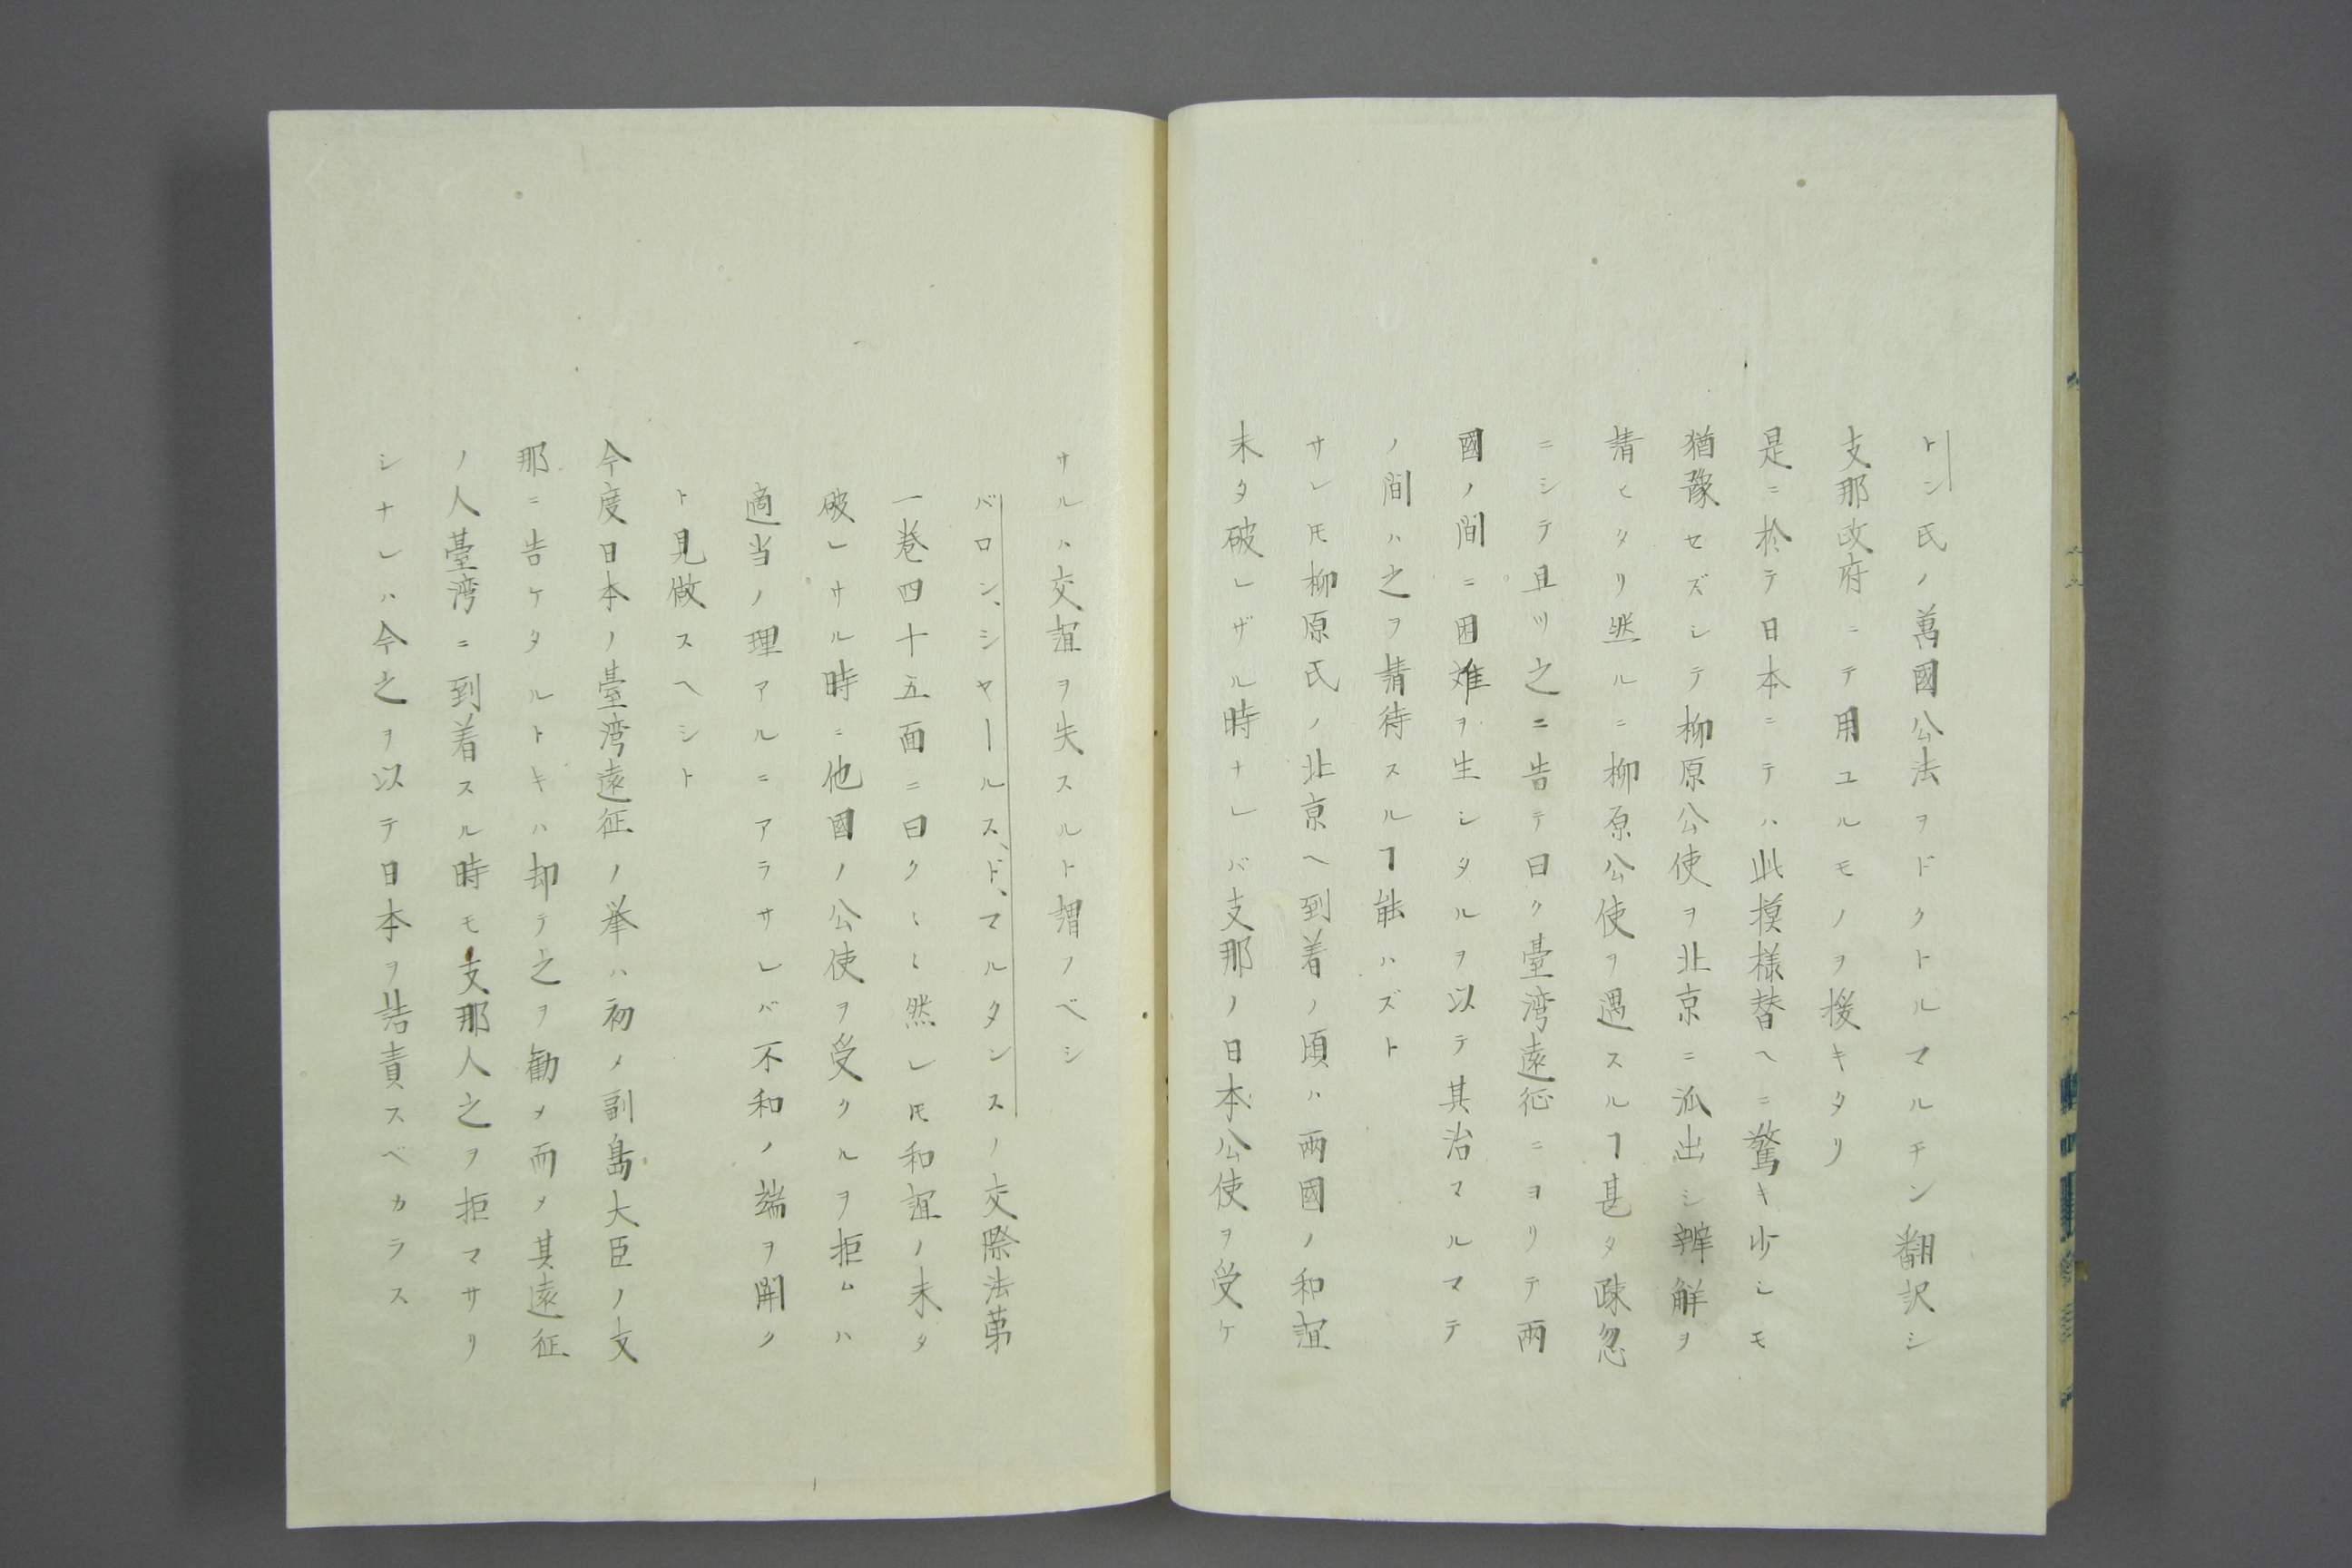 トン氏ノ萬國公法ヲドクトルマルチン翻訳シ
支那政府ニテ用ユルモノヲ援キタリ
是ニ於テ日本ニテハ此摸様替ヘニ驚キ少シモ
猶豫セズシテ柳原公使ヲ北京ニ派出シ辨解ヲ
請ヒタリ然ルニ柳原公使ヲ遇スルヿ甚タ疎忽
ニシテ且ツ之ニ告テ曰ク臺湾遠征ニヨリテ両
國ノ間ニ困難ヲ生シタルヲ以テ其治マルマテ
ノ間ハ之ヲ請待スルヿ能ハズト
サレ𪜈柳原氏ノ北京ヘ到着ノ頃ハ両國ノ和誼
未タ破レザル時ナレバ支那ノ日本公使ヲ受ケ
サルハ交誼ヲ失スルト謂ノベシ
バロン、シヤールス、ド、マルタンスノ交際法第
一巻四十五面ニ曰ク〻〻然レ𪜈和誼ノ未タ
破レサル時ニ他國ノ公使ヲ受クルヲ拒ムハ
適当ノ理アルニアラサレバ不和ノ端ヲ開ク
ト見做スヘシト
今度日本ノ臺湾遠征ノ挙ハ初メ副島大臣ノ支
那ニ告ケタルトキハ却テ之ヲ勧メ而メ其遠征
ノ人臺湾ニ到着スル時モ支那人之ヲ拒マサリ
シナレハ今之ヲ以テ日本ヲ詰責スベカラス